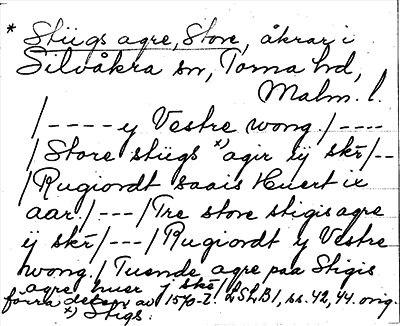 * Stiigs agre, Store, åkrar i
Silvåkra sn, Torna hd,
Malm. l.
/---- y Vestre wong. /----
/Store stiigs x) agir ij skr/--
/Rugiordt saais Huert ix
aar./---/Tre store stigis agre
ij skr/---/Rugiordt y Vestre
wong./Tuende agre paa Stigis
agre huer j skr/
förra delen av 1570-t. LSLB1, ss. 42, 44. orig.
x) Stigs.